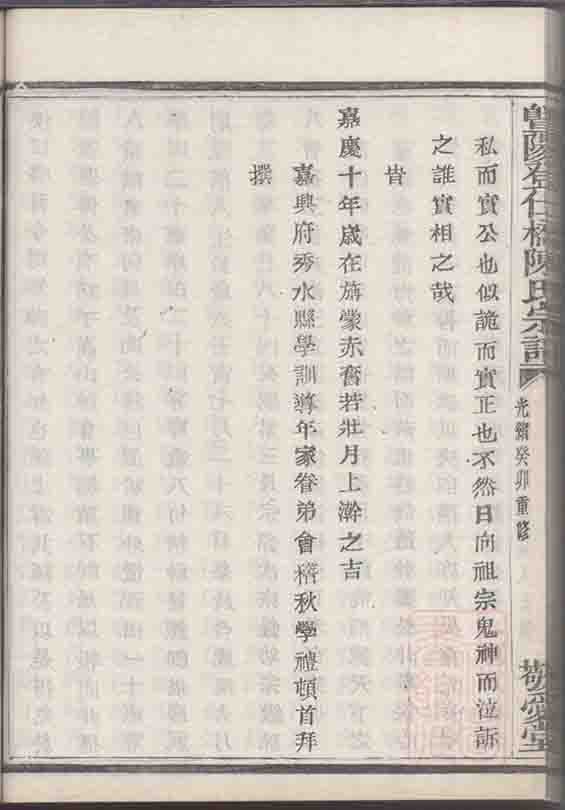 暨陽登仕橋陳氏宗譜
光緒癸卯重修
敬愛堂
私而實公也似詭而實正也不然日向祖宗鬼神而泣訴
之誰實相之哉
旹
嘉慶十年歲在旃蒙赤奮若壯月上澣之吉
嘉興府秀水縣學訓導年家眷弟會稽秋學禮頓首拜
撰